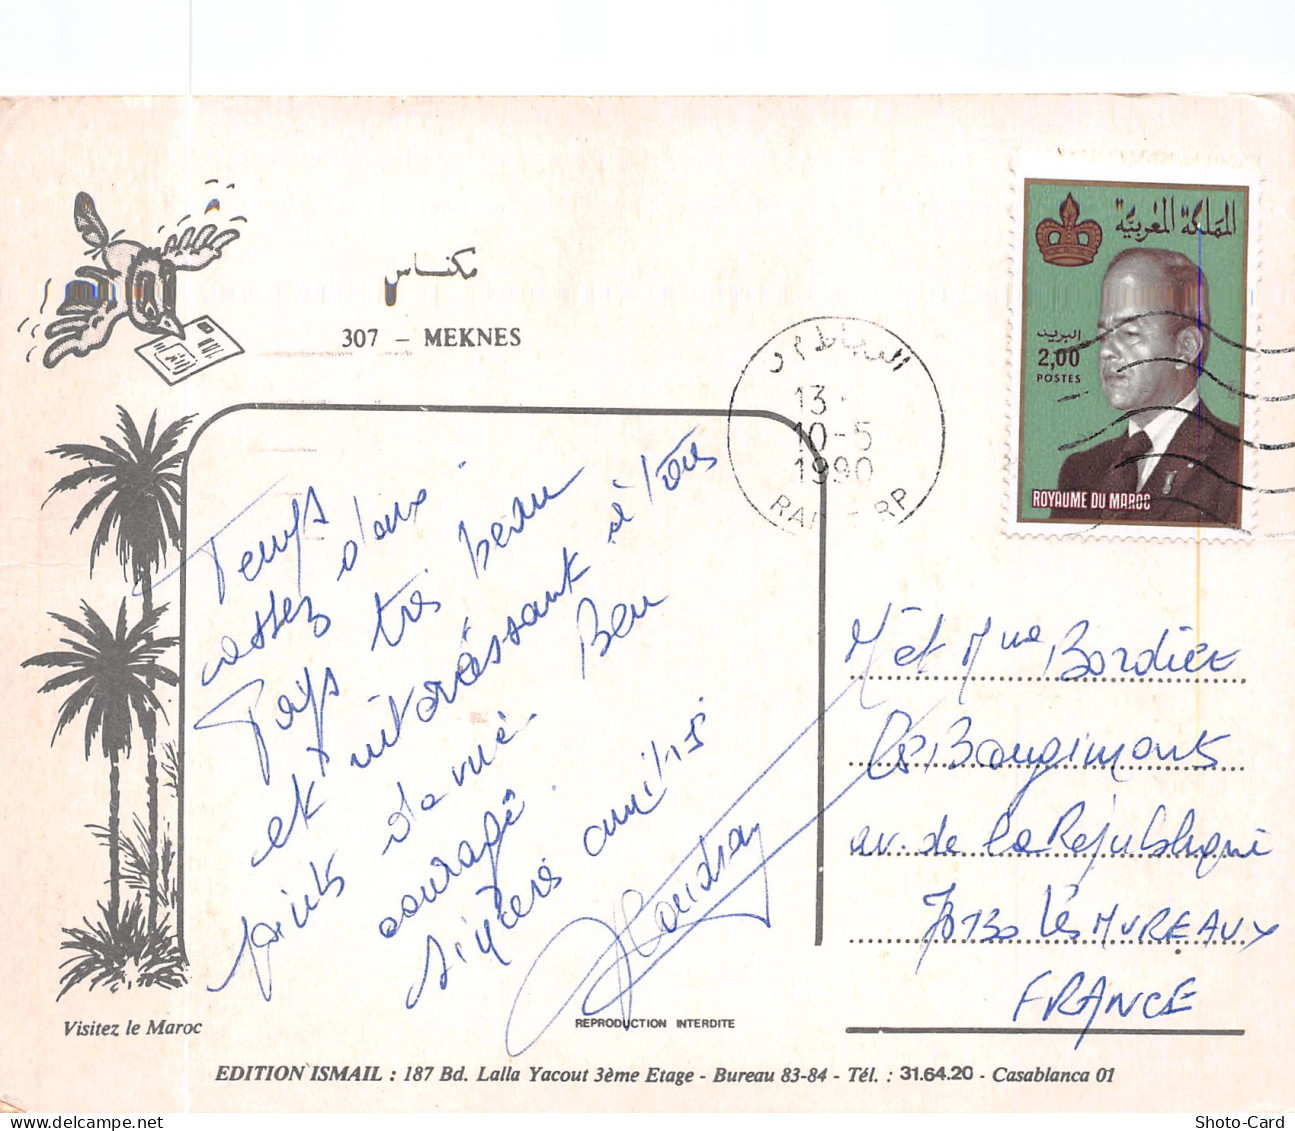 مكناس
307 – MEKNES
المملكة المغربية
البريد
2,00
POSTES
ROYAUME DU MAROC
13
10-5
1990
RP
Temps
assez doux
Pays très beau
et intéressant à tous
points de vue. Bon
courage.
Sincères amitiés
M et Mme Bordier
av. de la République
78130 Les MUREAUX
FRANCE
Visitez le Maroc
REPRODUCTION INTERDITE
EDITION ISMAIL : 187 Bd. Lalla Yacout 3ème Etage - Bureau 83-84 - Tél. : 31.64.20 - Casablanca 01
Shoto-Card